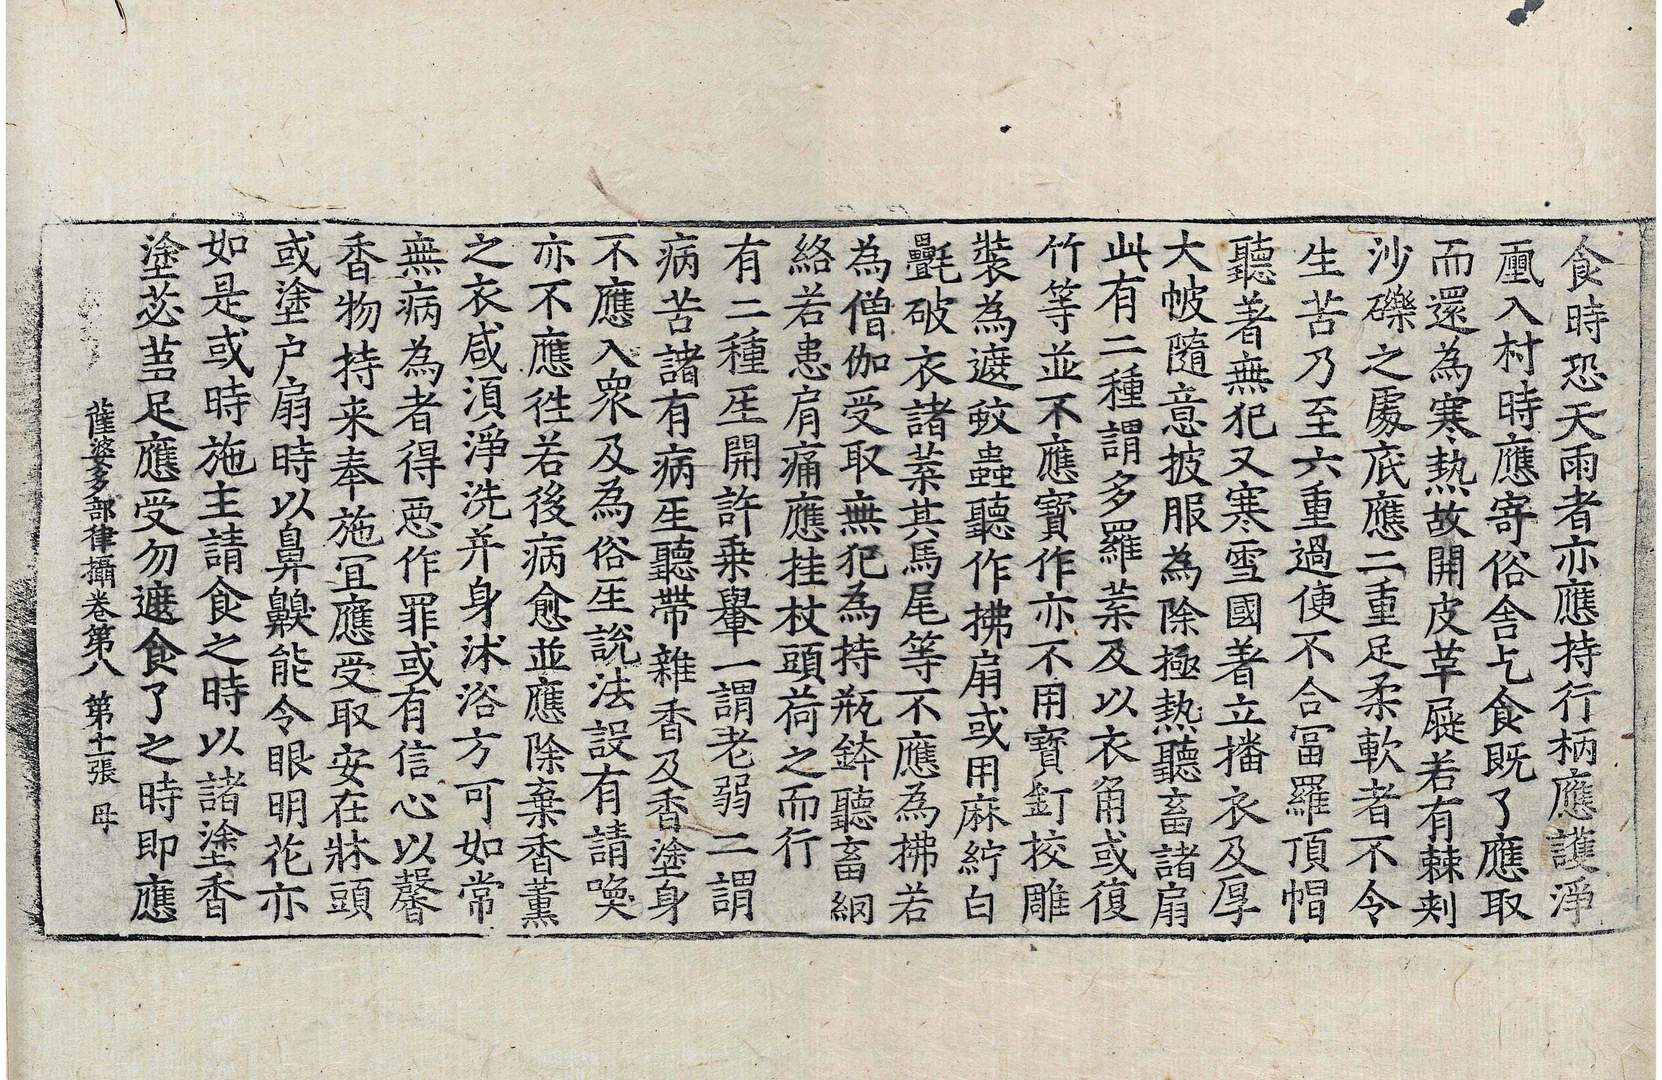 食時恐天雨者亦應持行柄應護淨
入村時應寄俗舍乞食既了應取
而還為寒熱故開皮革屣若有棘刾
沙礫之處底應二重足柔軟者不令
生苦乃至六重過便不合富羅頂帽
聽著無犯又寒雪國著立播衣及厚
大帔隨意披服為除極熱聽畜諸扇
此有二種謂多羅葉及以衣角或復
竹等並不應寶作亦不用寶釘挍雕
裝為遮蚊蟲聽作拂扇或用麻紵白
㲲破衣諸葉其馬尾等不應為拂若
為僧伽受取無犯為持瓶鉢聽畜網
絡若患肩痛應挂杖頭荷之而行
有二種𤯔開許乗轝一謂老弱二謂
病苦諸有病𤯔聽帶雜香及香塗身
不應入眾及為俗𤯔說法設有請喚
亦不應徃若後病愈並應除棄香薰
之衣咸湏淨洗并身沐浴方可如常
無病為者得惡作罪或有信心以馨
香物持来奉施冝應受取安在牀頭
或塗户扇時以鼻齅能令眼明花亦
如是或時施主請食之時以諸塗香
塗苾芻足應受勿遮食了之時即應
薩婆多部律攝卷第八 第十一張 母